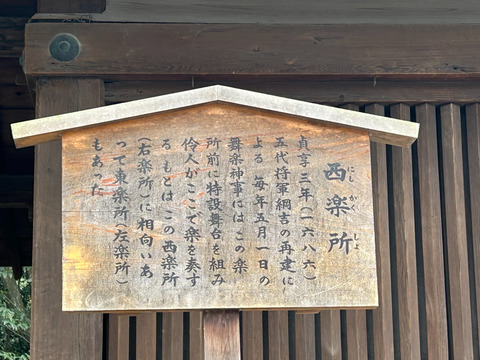 西楽所
にし がく しょ
貞享三年(一六八六)
五代将軍綱吉の再建に
よる 毎年五月一日の
舞楽神事にはこの楽
所前に特設舞台を組み
伶人がここで楽を奏す
る もとは この西楽所
(右楽所)に相向いあ
って東楽所(左楽所)
もあった